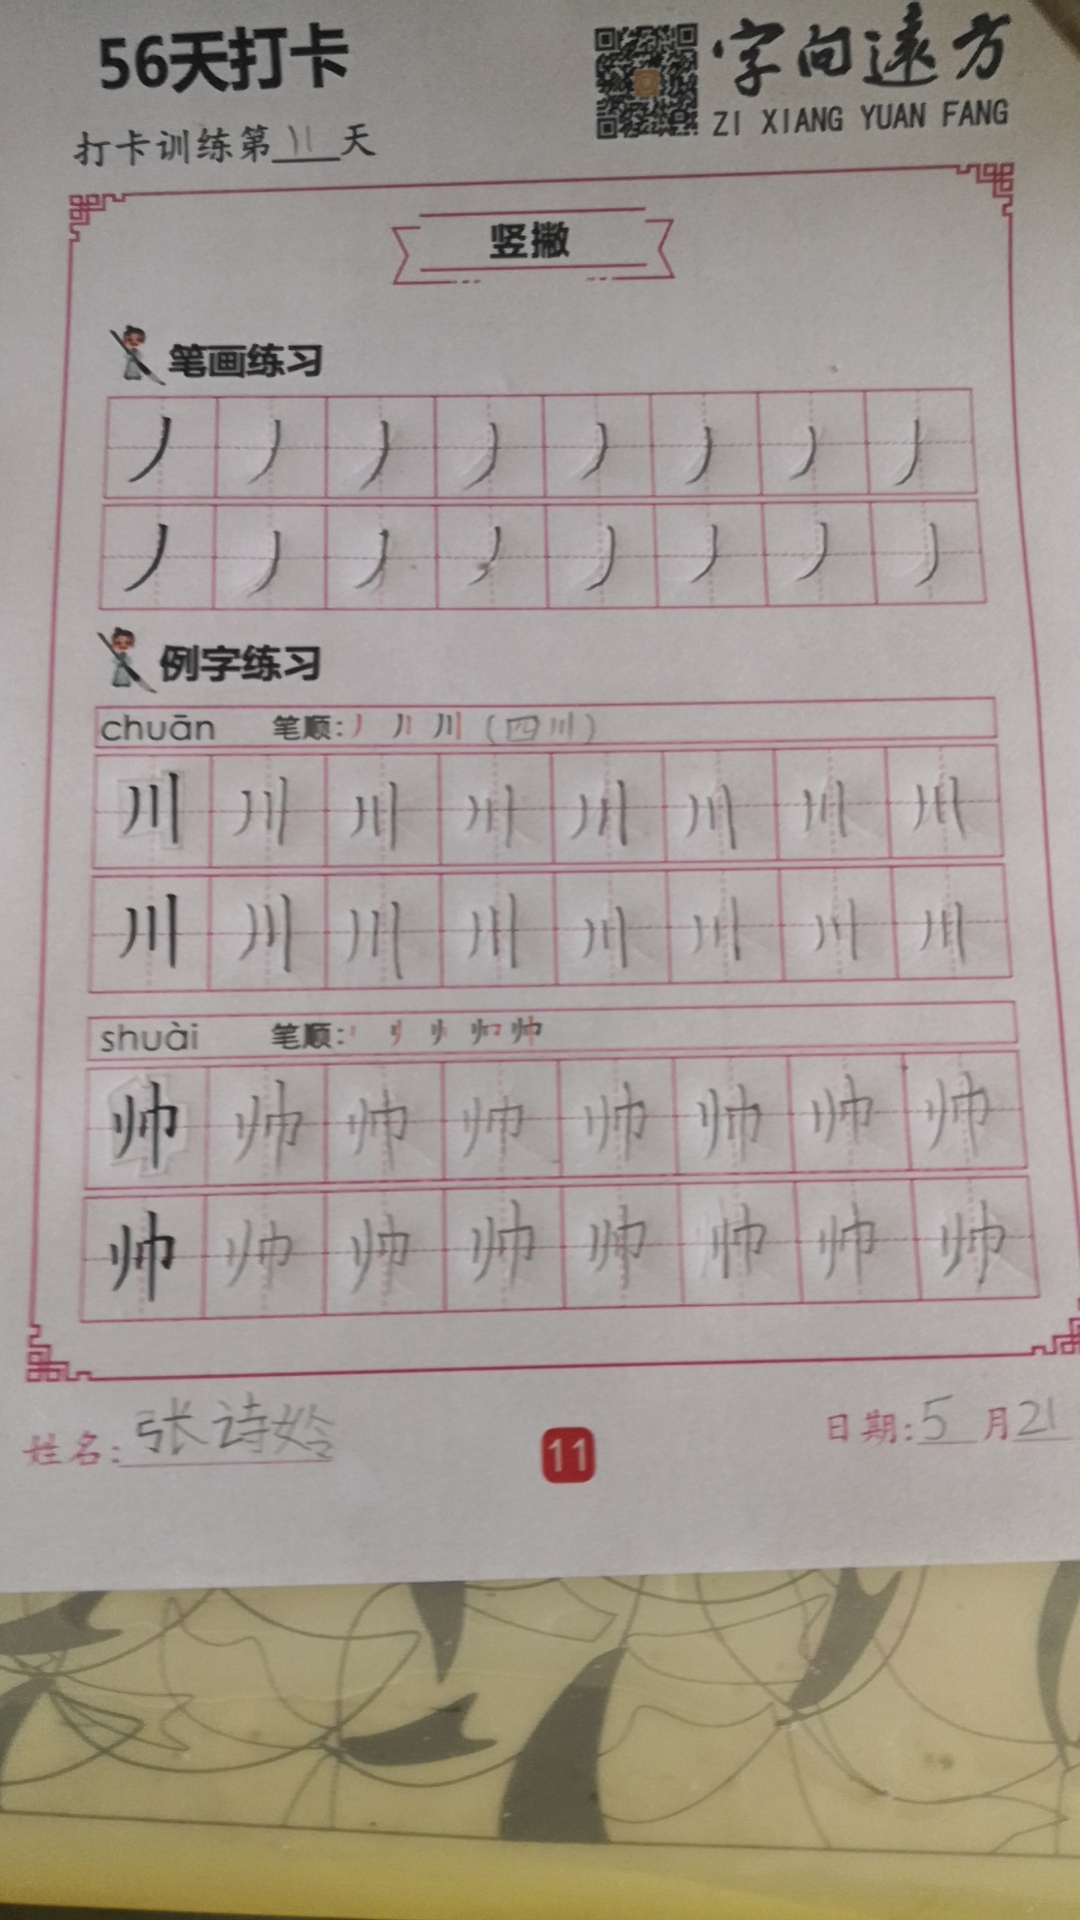 56天打卡
字向遠方
ZI XIANG YUAN FANG
打卡训练第11天
竖撇
笔画练习
丿丿丿丿丿丿丿丿
丿丿丿丿丿丿丿丿
例字练习
chuān 笔顺: (四川)
川川川川川川川川
川川川川川川川川
shuài 笔顺:
帅帅帅帅帅帅帅帅
帅帅帅帅帅帅帅帅
姓名:张诗姈
11
日期:5月21